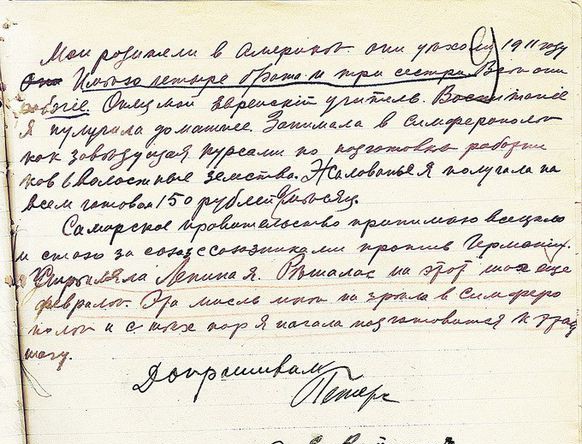 Мои родители в Америке. они уехали в 1911 году
Имею четыре брата и три сестры. Все они
рабочие. Отец мой еврейскій учитель. Воспитаніе
я пулучила домашнее. Занимала в Симферополе
как заведущая курсами по подготовке работни
ков в волостные земства. Жалованье я получала на
всем готовом 150 рублей в месяц.
Самарское правительство принимаю всецело
и стою за союз с союзниками против Германіи.
Стреляла в Ленина я. Решалась на этот шаг еще
феврале. Эта мысль мне на зрела в Симферо
поле и с тех пор я начала подготовится к этому
шагу.
Допрашивал
Петерс